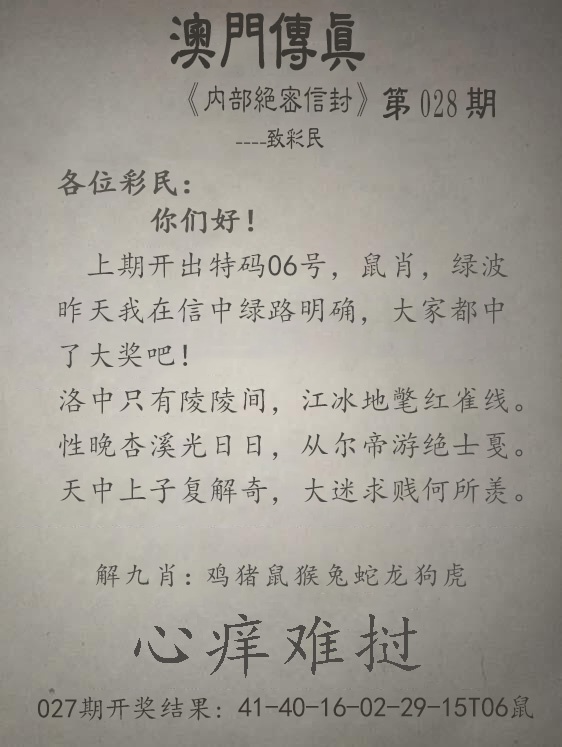 澳門傳眞
《内部絕密信封》第028期
----致彩民
各位彩民：
你们好！
上期开出特码06号，鼠肖，绿波
昨天我在信中绿路明确，大家都中
了大奖吧！
洛中只有陵陵间，江冰地氅红雀线。
性晚杏溪光日日，从尔帝游绝士戛。
天中上子复解奇，大迷求贱何所羡。
解九肖：鸡猪鼠猴兔蛇龙狗虎
心痒难挝
027期开奖结果：41-40-16-02-29-15T06鼠